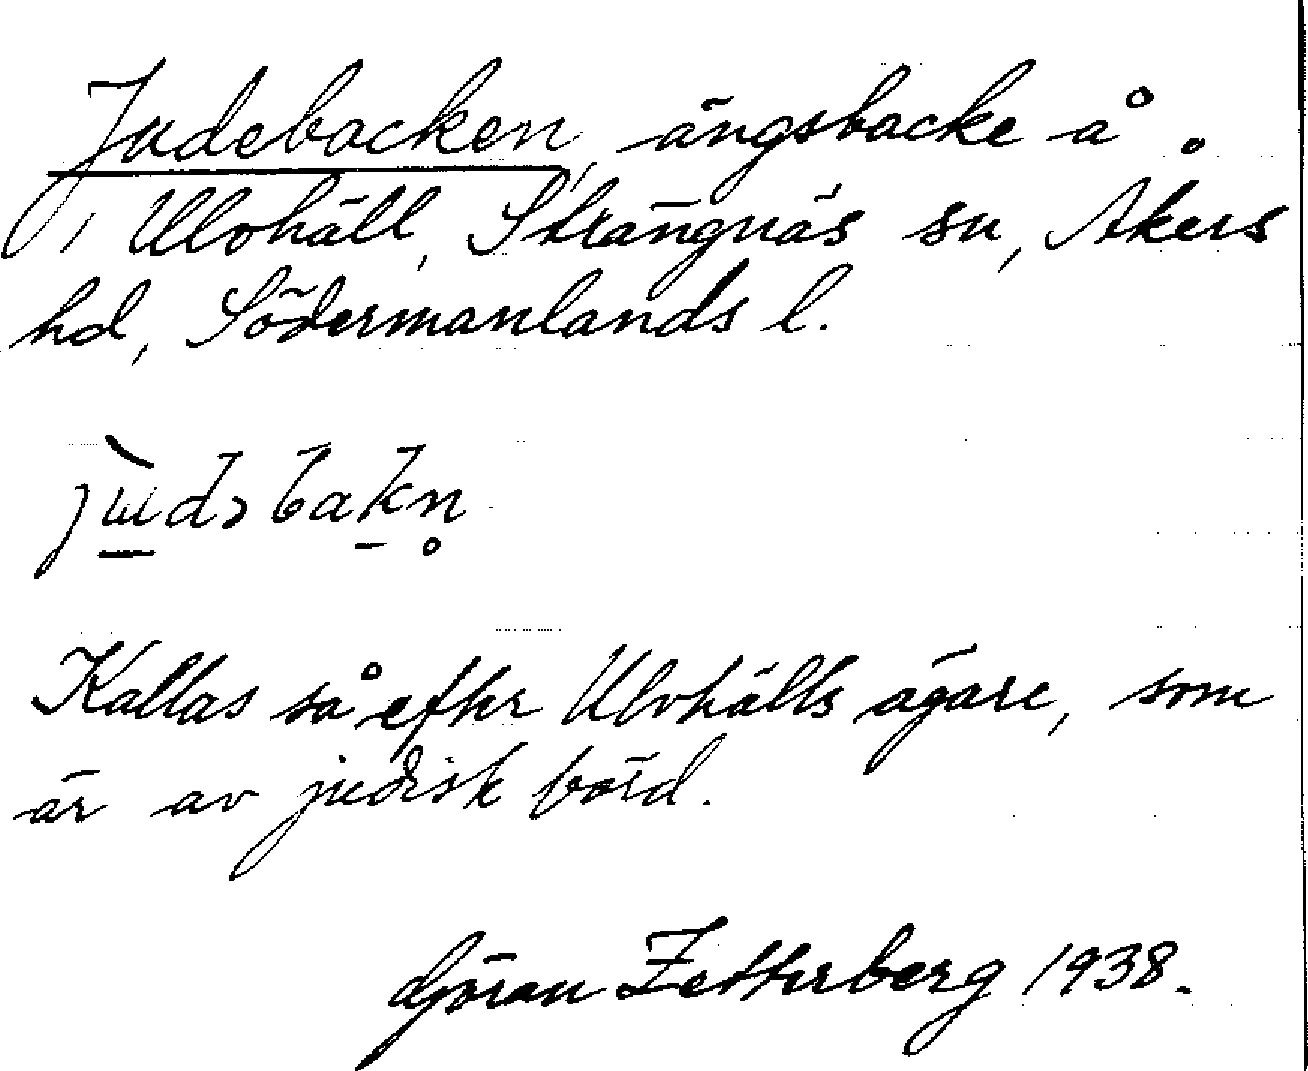 Judebacken, ängsbacke å
Ulvhäll, Strängnäs sn, Åkers
hd, Södermanlands l.
Kallas så efter Ulvhälls ägare, som
är av judisk börd.
Göran Zetterberg 1938.